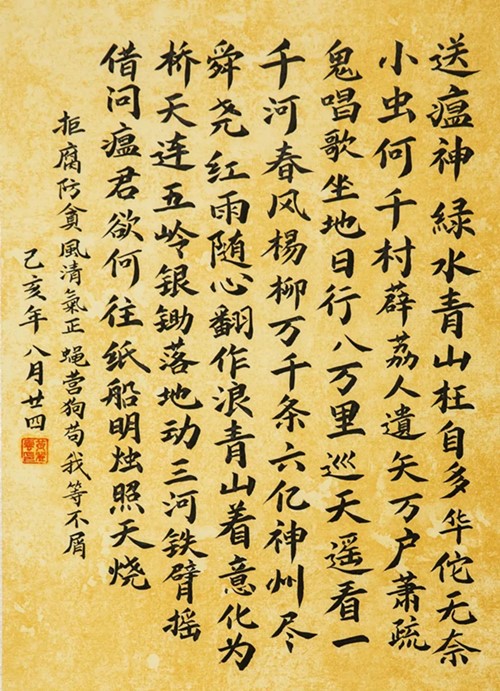 送瘟神 緑水青山枉自多华佗无奈
小虫何千村薜荔人遺矢万户萧疏
鬼唱歌坐地日行八万里巡天遥看一
千河春风楊柳万千条六亿神州尽
舜尧红雨随心翻作浪青山着意化为
桥天连五岭银锄落地动三河铁臂摇
借问瘟君欲何往纸船明烛照天烧
拒腐防貪風清氣正蝇营狗苟我等不屑
己亥年八月廿四